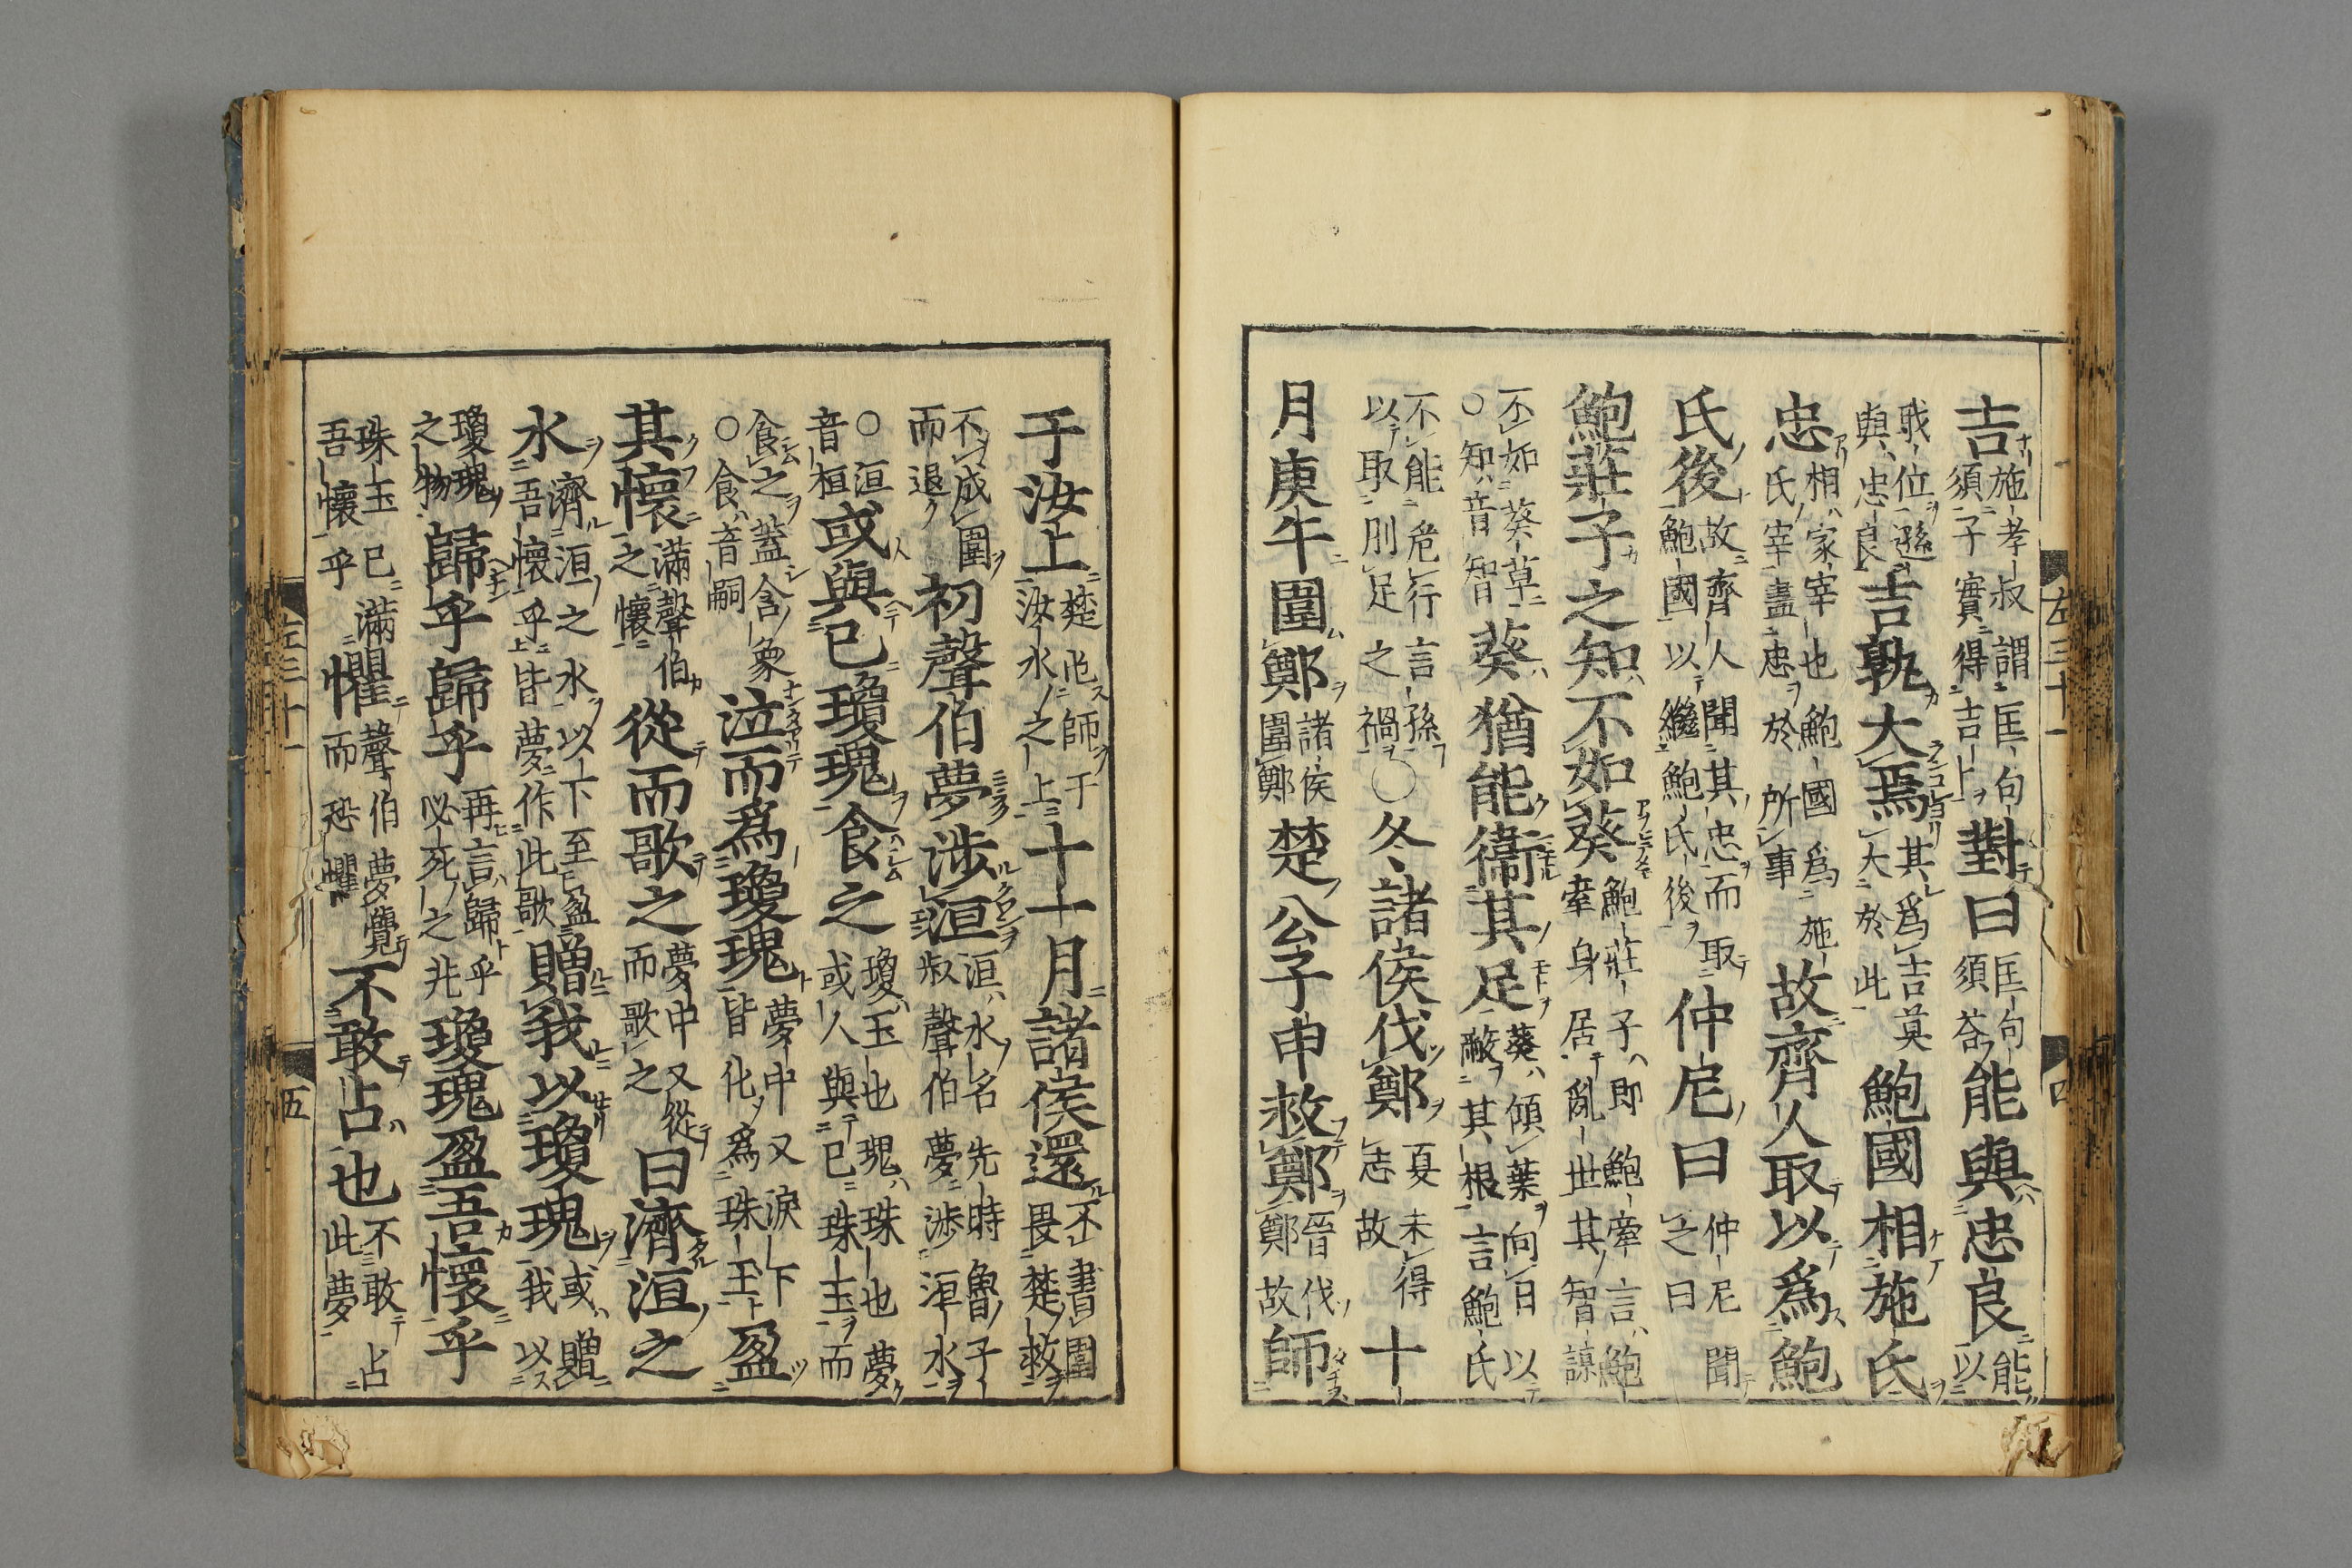 左三十一 四
吉施孝叔謂匡句須子實得吉卜對曰匡句須荅能與忠良能以
我位遜與忠良吉孰大焉其爲吉莫大於此鮑國相施氏
忠相家宰也鮑國爲施氏宰盡忠於所事故齊人取以爲鮑
氏後故齊人聞其忠而取鮑國以繼鮑氏後仲尼曰仲尼聞之曰
鮑莊子之知不如葵鮑莊子即鮑牽言鮑牽身居亂世其智諒
不如葵草○知音智葵猶能衞其足葵傾葉向日以蔽其根言鮑氏
不能危行言孫以取刖足之禍○冬諸侯伐鄭夏未得志故十
月庚午圍鄭諸侯圍鄭楚公子申救鄭晉伐鄭故師
于汝上楚出師于汝水之上十十月諸侯還不書圍畏楚救
不成圍而退初聲伯夢涉洹洹水名先時魯子叔聲伯夢涉洹水
○洹音桓或與己瓊瑰食之瓊玉也瑰珠也夢或人與己珠玉而
食之蓋含象○食音嗣泣而爲瓊瑰夢中又淚下皆化爲珠玉盈
其懷滿聲伯之懷從而歌之夢中又從而歌之曰濟洹之
水濟洹之水以下至盈吾懷乎皆夢作此歌贈我以瓊瑰或贈我以
瓊瑰之物歸乎歸乎再言歸乎必死之兆瓊瑰盈吾懷乎
珠玉已滿吾懷乎懼聲伯夢覺而恐懼不敢占也不敢占此夢
左三十一 五